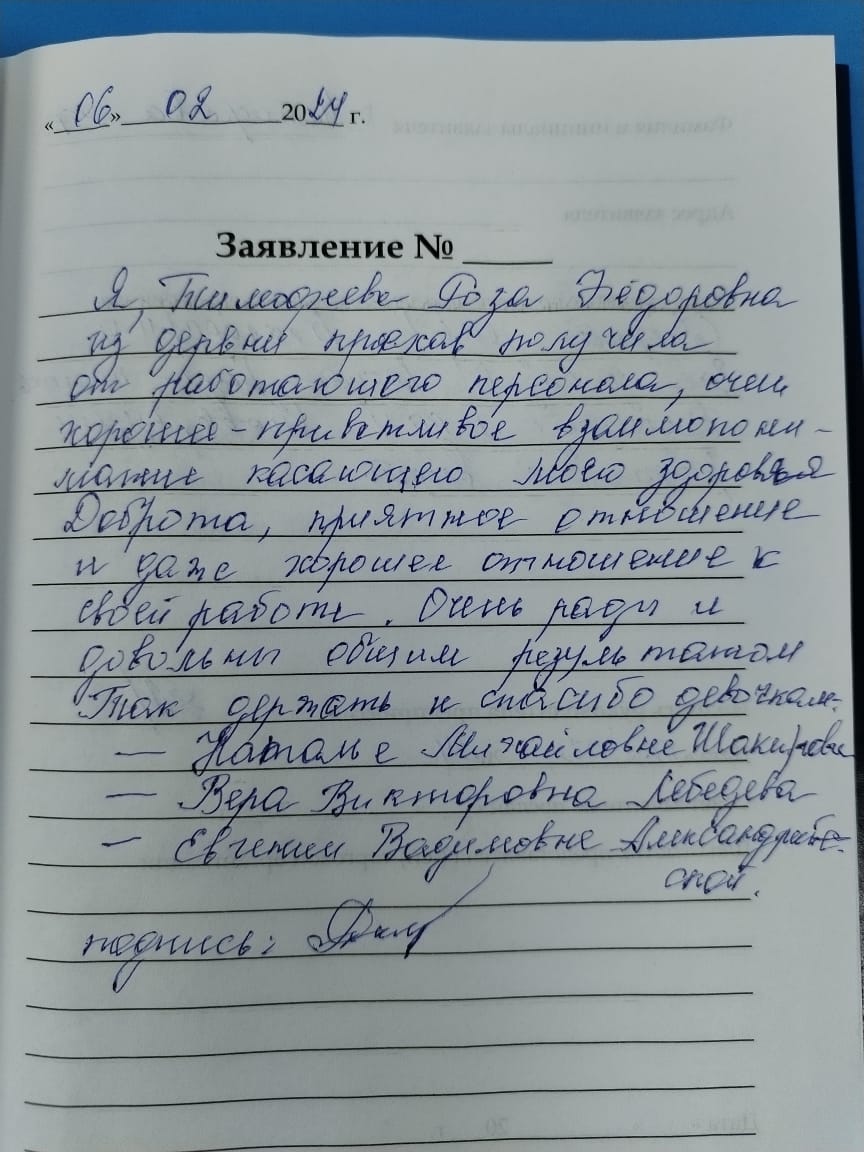 «06» 02 2024 г.
Заявление № ____
Я, Тимофеева Роза Фёдоровна
из дервни проехав получила
от работающего персонала, очен
хорошее-приветливое взаимопони-
мание касающего моего здоровья
Доброта, приятное отношение
и даже хорошее отношение к
своей работе. Очень рады и
довольны общим результатом
Так держать и спасибо девочкам:
— Наталье Михайловне Шакировне
— Вера Викторовна Лебедева
— Евгении Вадимовне Александрийс-
ской.
подпись:
Фамилия и инициалы заявителя
Адрес заявителя